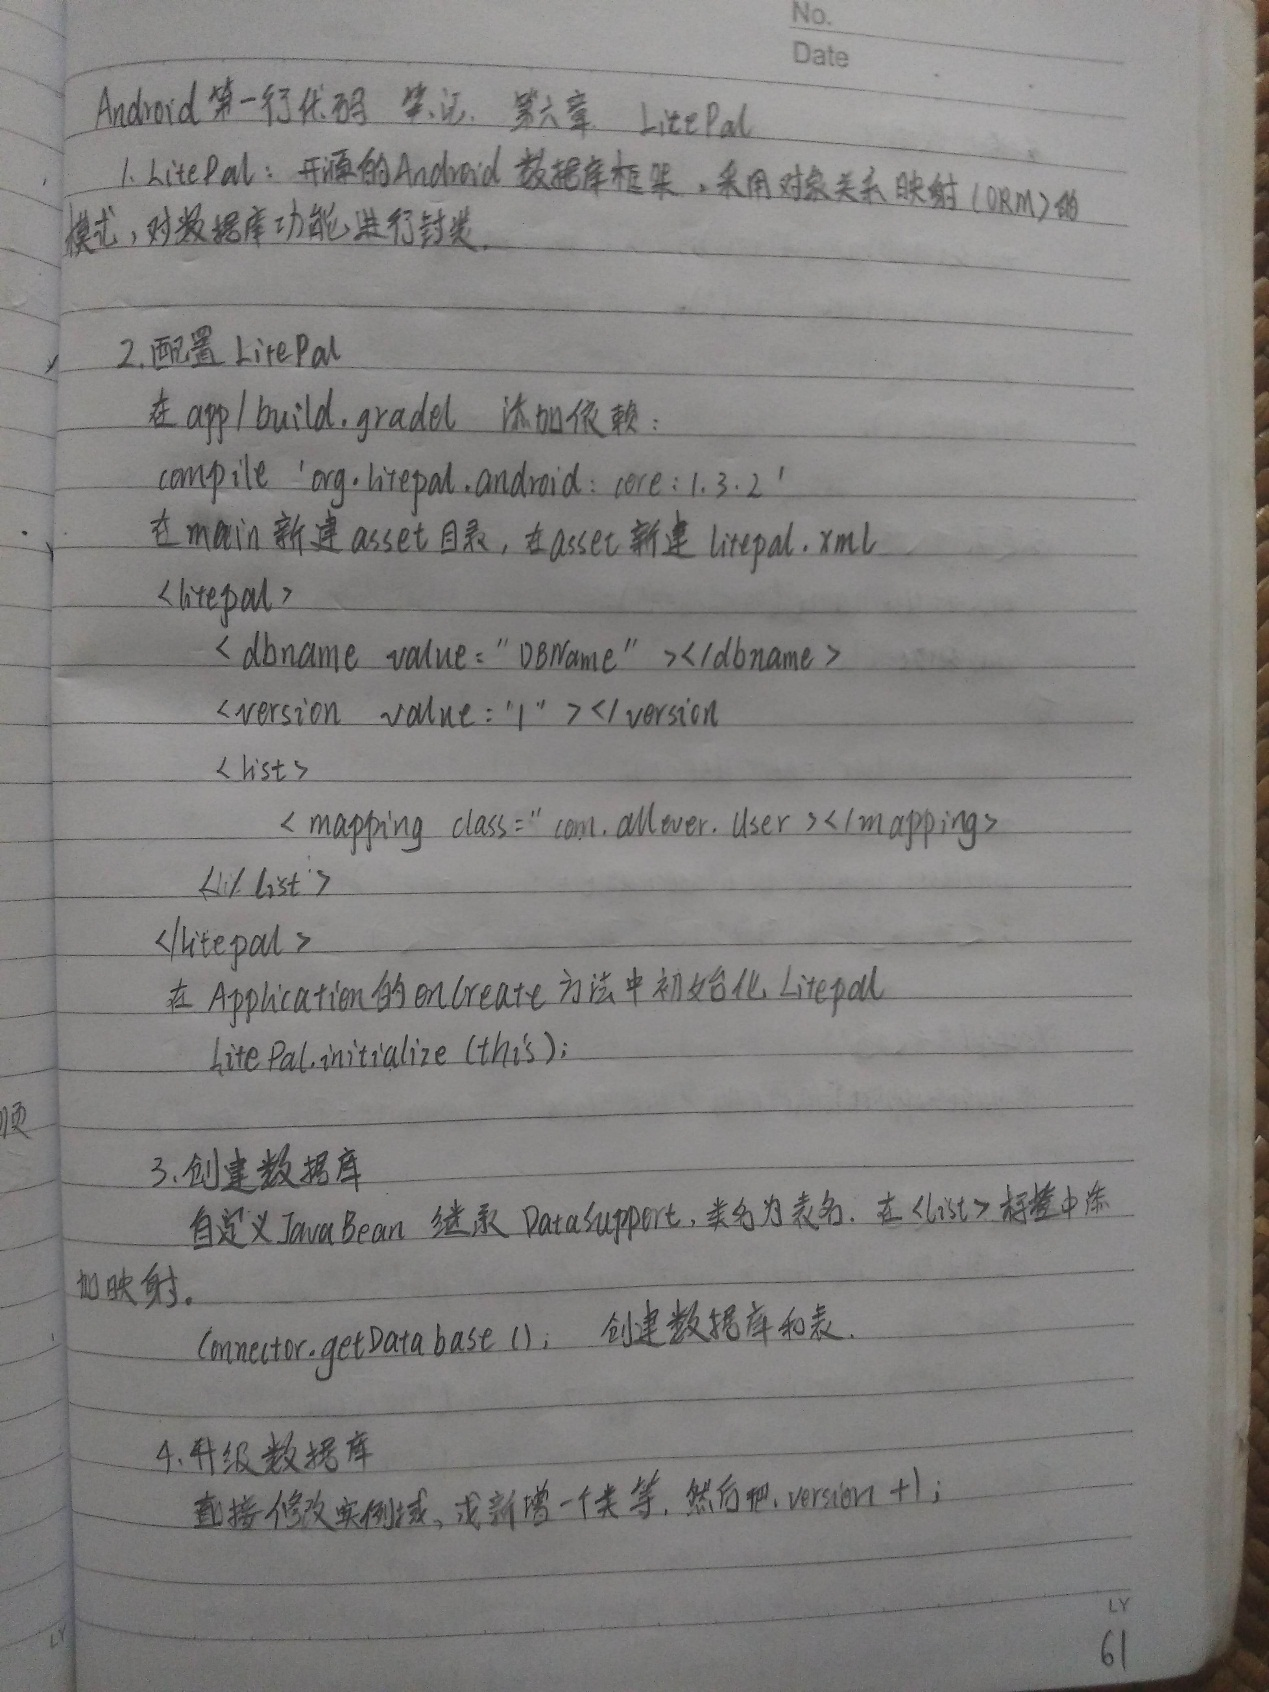 No.
Date
Android 第一行代码 笔记. 第六章 LitePal
1. LitePal: 开源的Android 数据库框架,采用对象关系映射(ORM)的
模式,对数据库功能进行封装.
2.配置 LitePal
在 app/build.gradel 添加依赖:
compile 'org.litepal.android:core:1.3.2'
在main新建 asset 目录, 在asset 新建 litepal.xml
<litepal>
< dbname value="DBName" ></dbname>
<version value="1" ></version
<list>
< mapping class="com.allever.User ></mapping>
list>
</litepal>
在 Application的onCreate 方法中初始化 Litepal
LitePal.initialize (this);
顺
3.创建数据库
自定义JavaBean 继承 DataSupport, 类名为表名. 在<list>标签中添
加映射。
Connector.getDatabase (); 创建数据库和表.
4.升级数据库
直接修改实例域、或新增一个类等, 然后把 version +1;
LY
LY
61